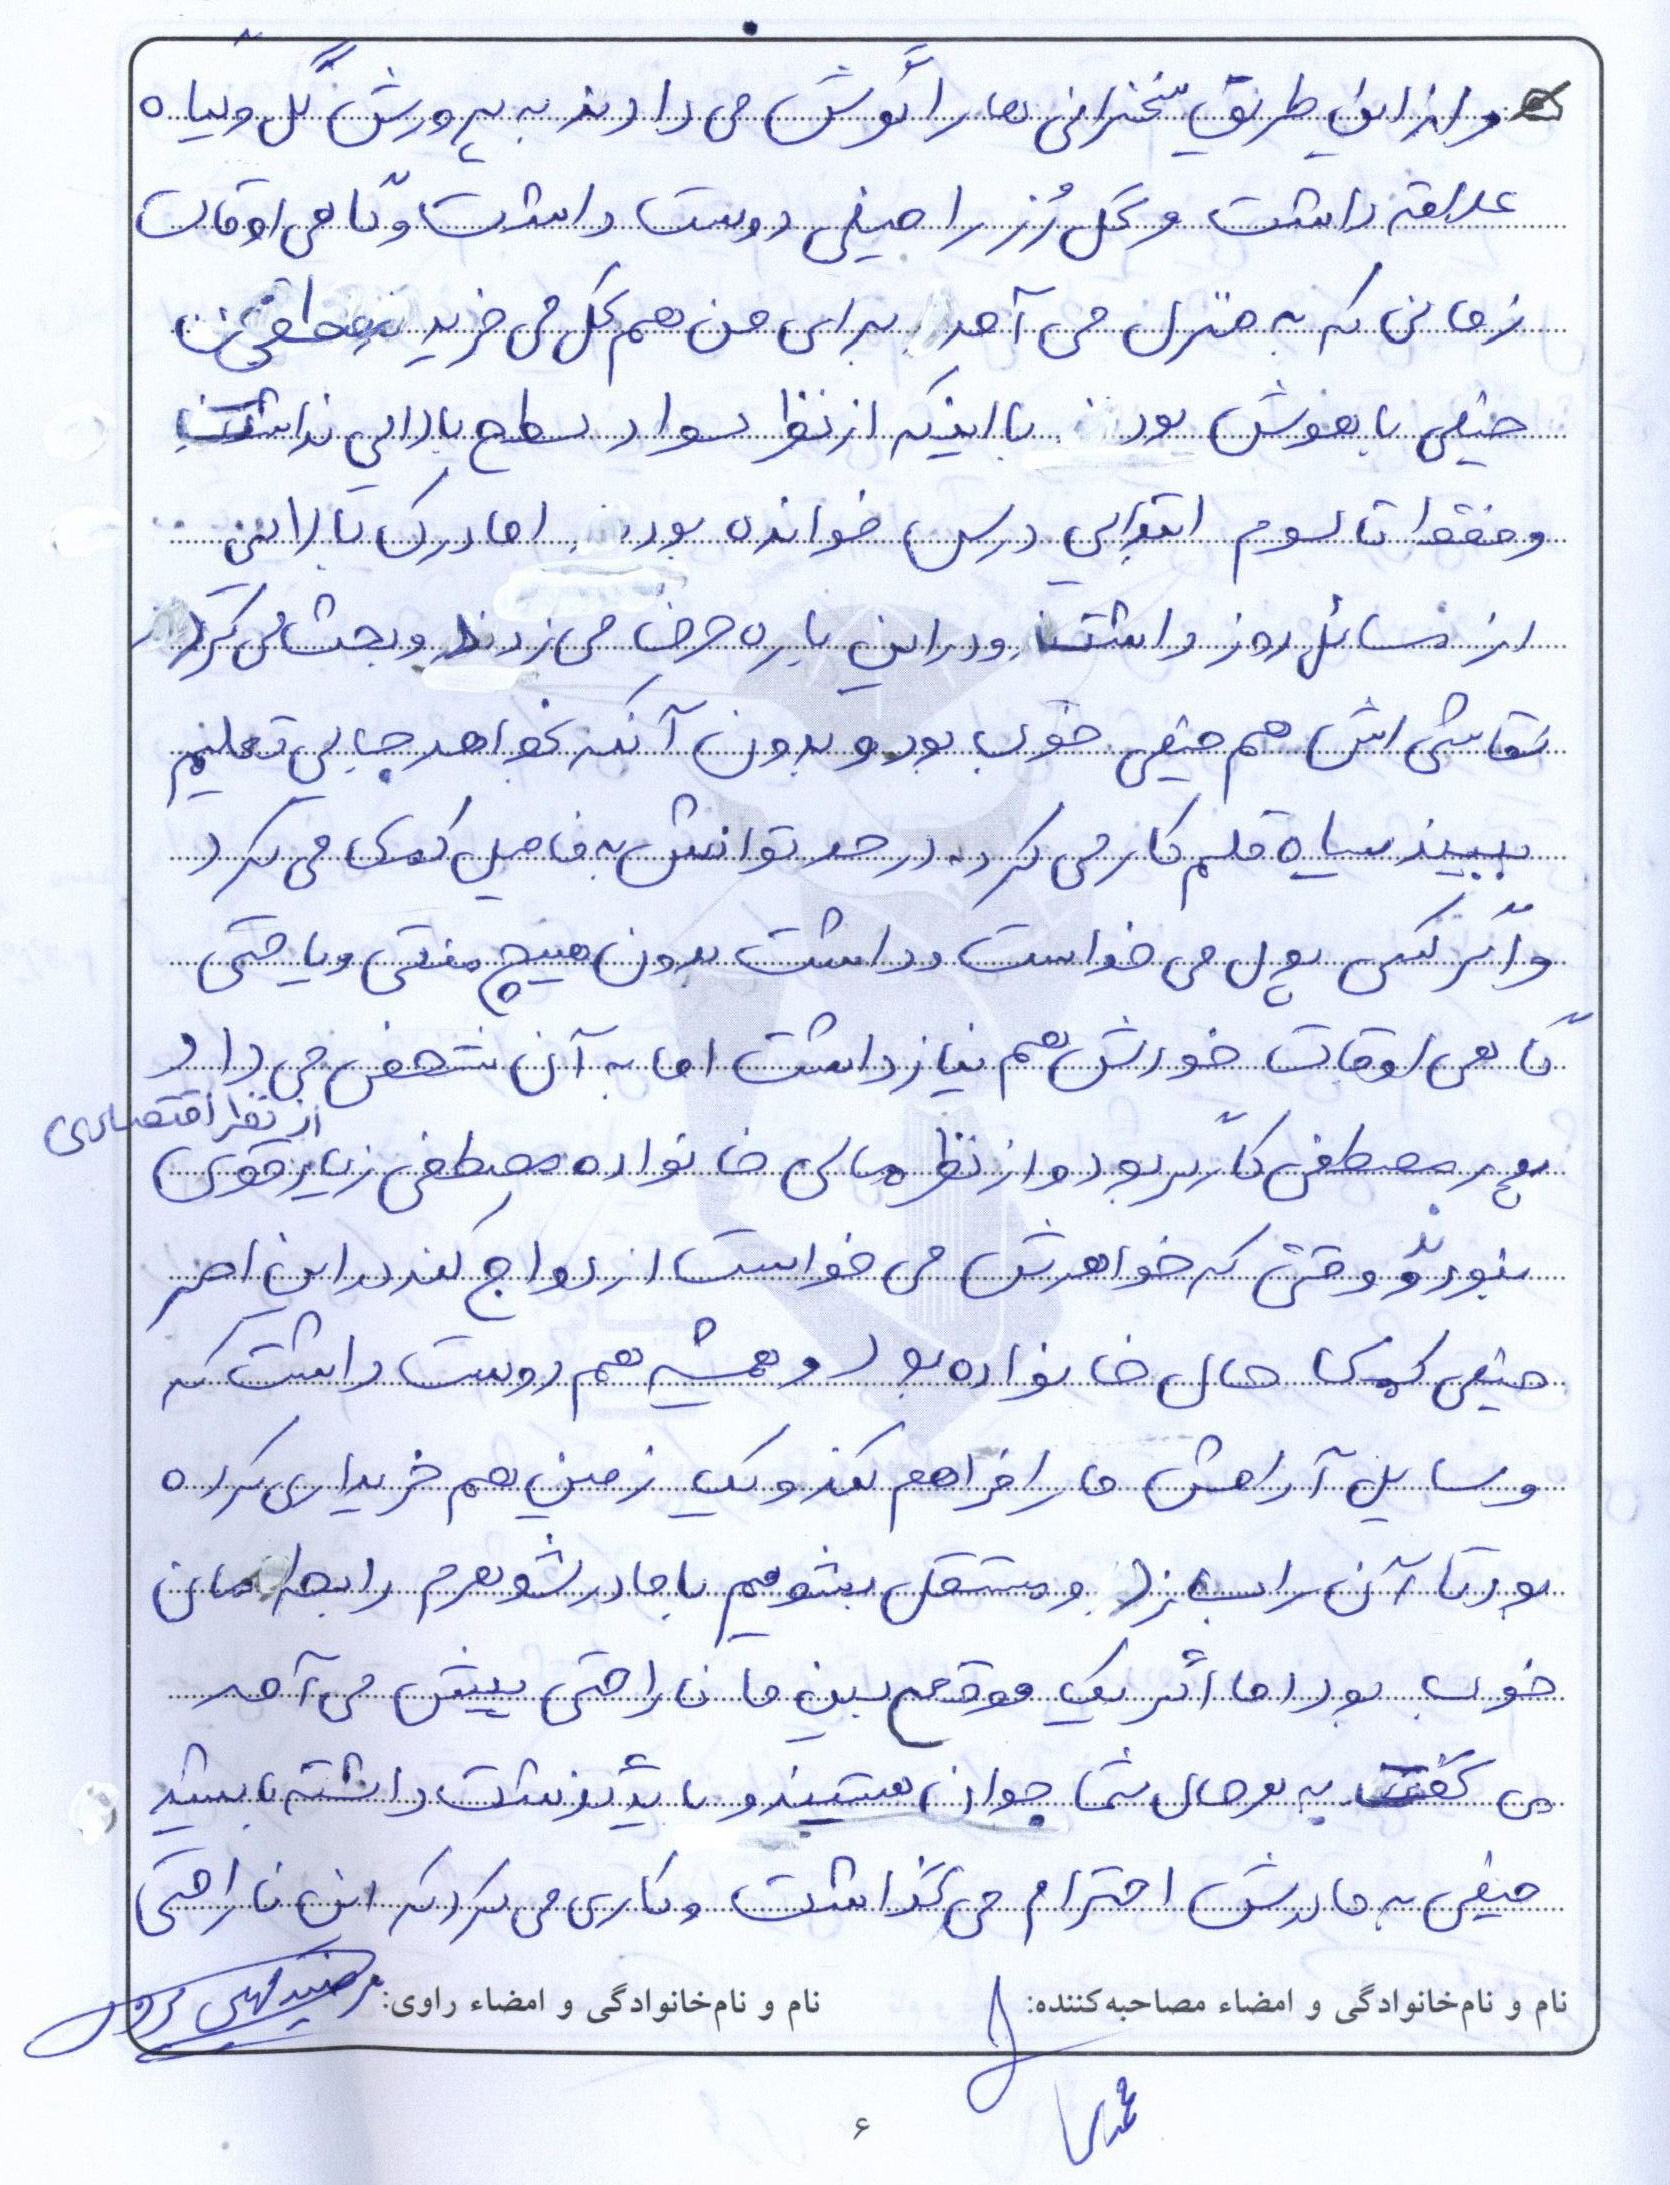 و از این طریق سخنرانی ها را گوش می دادند به پرورش گل و گیاه
علاقه داشت و گل رُز را خیلی دوست داشت و گاهی اوقات
زمانی که به منزل می آمد برای من هم گل می خرید مصطفی
خیلی باهوش بود با اینکه از نظر سواد سطح بالایی نداشت
و فقط تا سوم ابتدایی درس خوانده بود اما درک بالائی
از مسائل روز داشت و در این باره حرف می زد و بحث می کرد
نقاشی اش هم خیلی خوب بود و بدون آنکه بخواهد جایی تعلیم
ببیند سیاه قلم کار می کرد، در حد توانش به فامیل کمک می کرد
و اگر کسی پول می خواست و داشت بدون هیچ منتی و یا حتی
گاهی اوقات خودش هم نیاز داشت اما به آن شخص می داد
از نظر اقتصادی
پدر مصطفی کارگر بود و از نظر مالی خانواده مصطفی زیاد قوی
نبودند و وقتی که خواهرش می خواست ازدواج کند در این امر
خیلی کمک حال خانواده بود و همیشه هم دوست داشت که
وسایل آرامش ما را فراهم کند و یک زمین هم خریداری کرده
بود تا آن را بسازد و مستقل بشویم با مادر شوهرم رابطه مان
خوب بود اما اگر یک موقع بین ما ناراحتی پیش می آمد
می گفت به هر حال شما جوان هستید و باید گذشت داشته باشید
خیلی به مادرش احترام می گذاشت و کاری می کرد که این ناراحتی
نام و نام‌خانوادگی و امضاء مصاحبه‌کننده: نام و نام‌خانوادگی و امضاء راوی:
۶